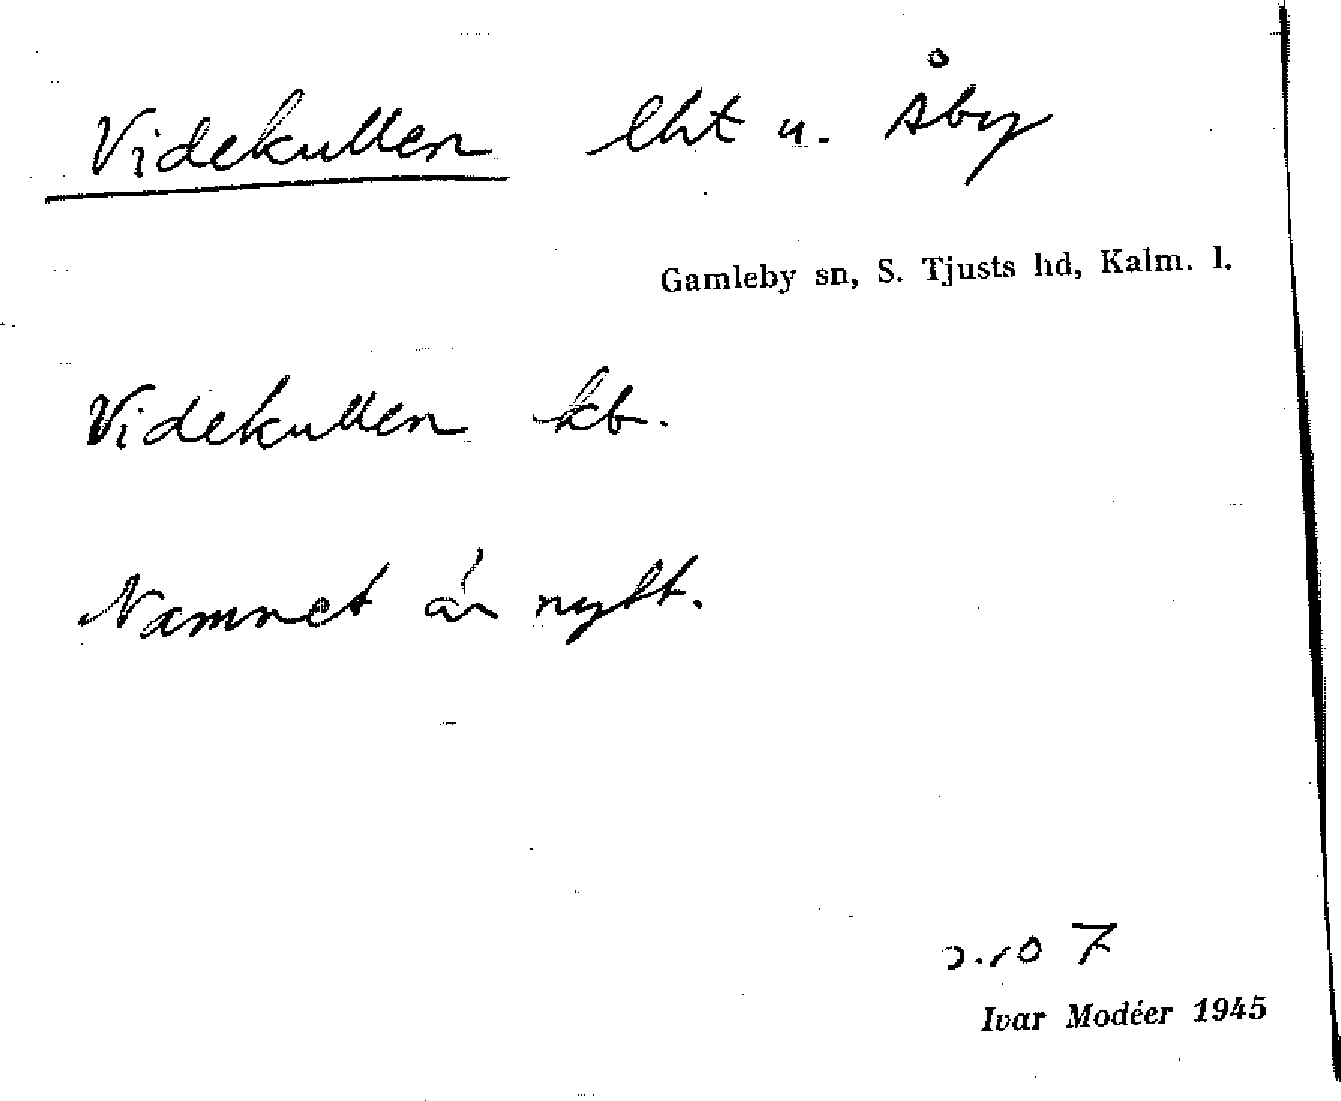 Videkullen lht u. Åby
Gamleby sn, S. Tjusts hd, Kalm. l.
Videkullen kb.
Namnet är nytt.
7
Ivar Modéer 1945